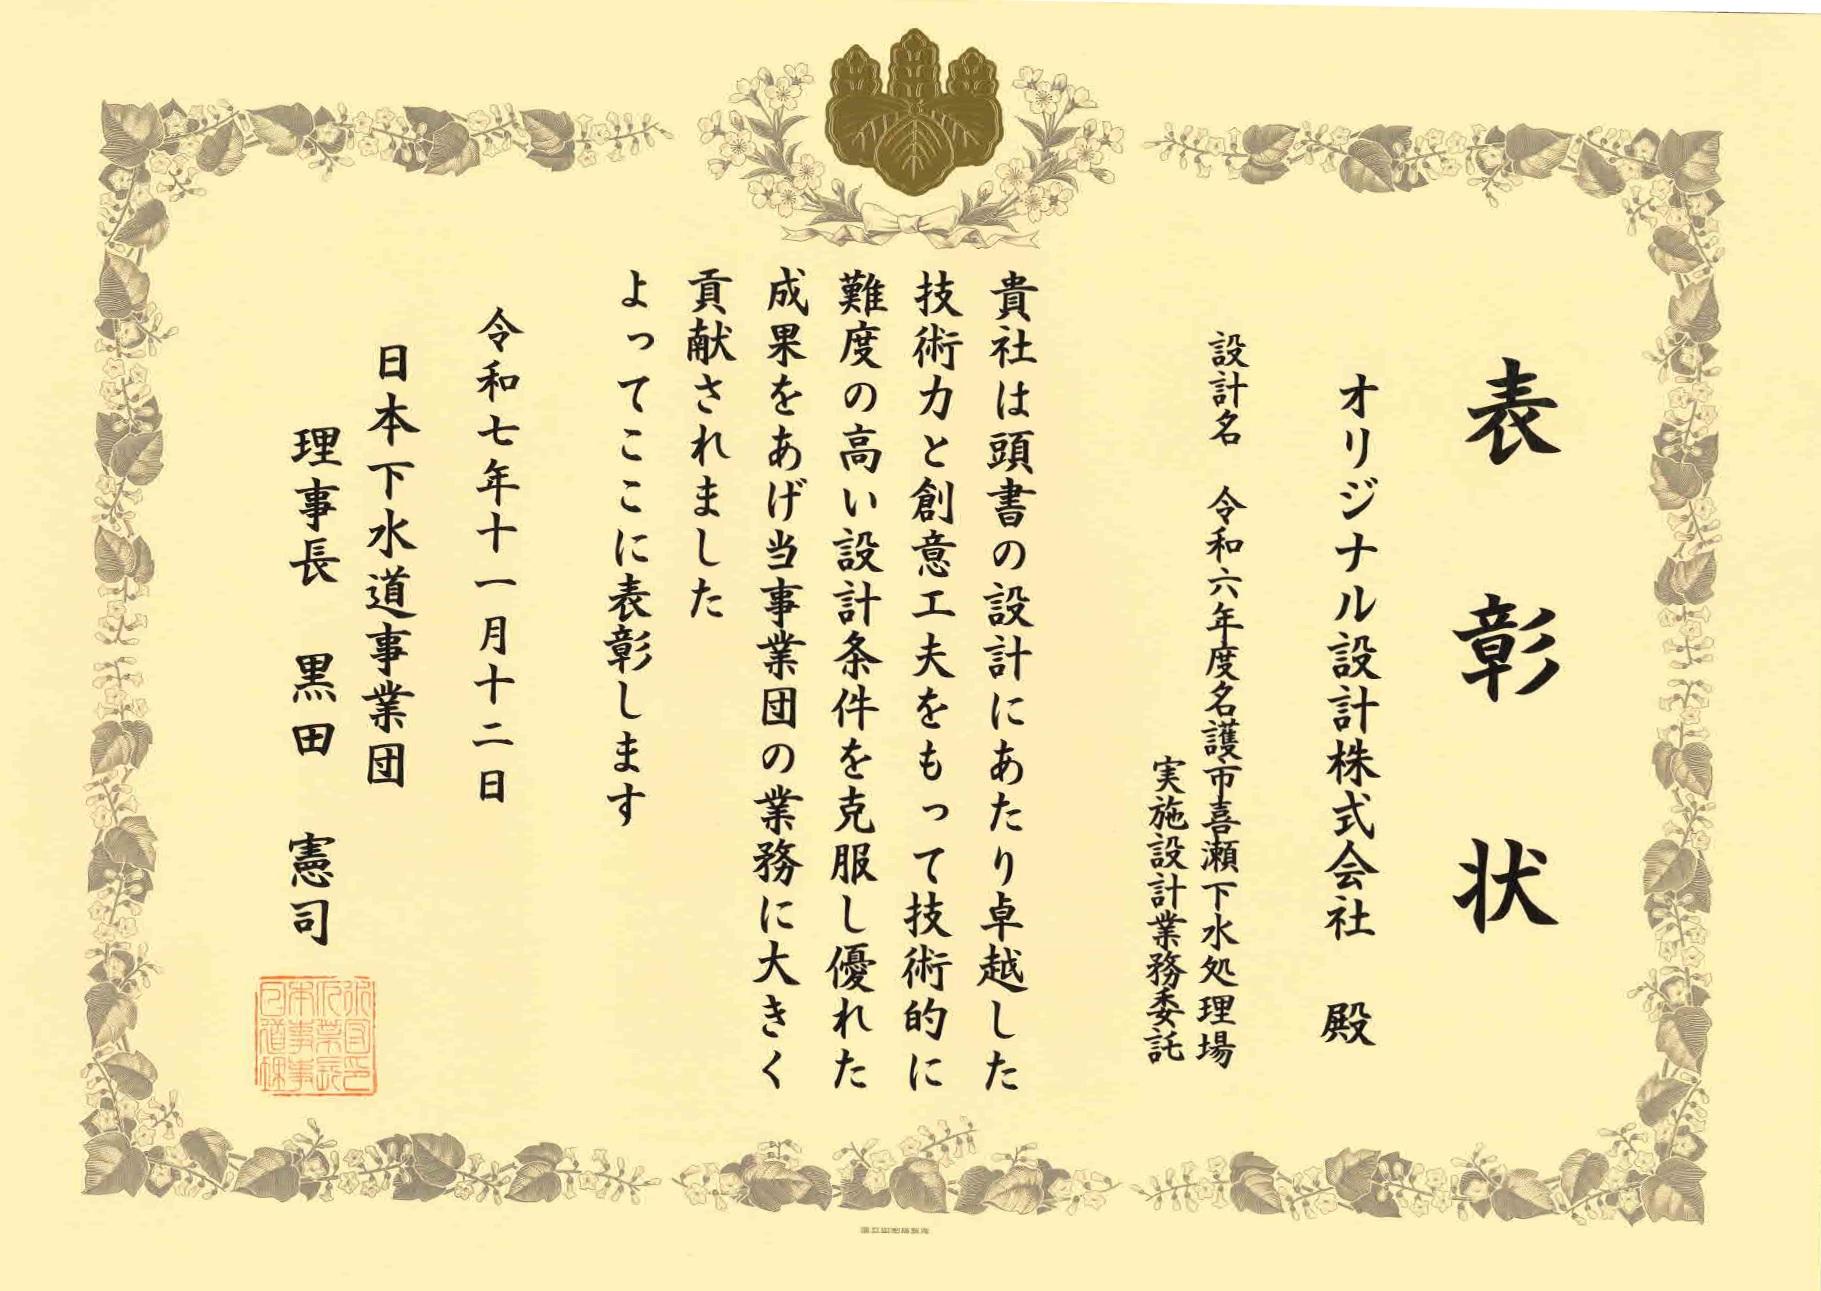 表彰状
オリジナル設計株式会社 殿
設計名 令和六年度名護市喜瀬下水処理場
実施設計業務委託
貴社は頭書の設計にあたり卓越した
技術力と創意工夫をもって技術的に
難度の高い設計条件を克服し優れた
成果をあげ当事業団の業務に大きく
貢献されました
よってここに表彰します
令和七年十一月十二日
日本下水道事業団
理事長 黒田 憲司